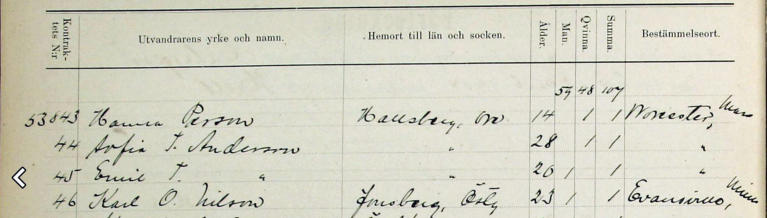 Kontrak-
tets N:r
Utvandrarens yrke och namn.
Hemort till län och socken.
Ålder.
Man.
Qvinna.
Summa.
Bestämmelseort.
59 48 107
53843 Hanna Person Hallsberg, Öre 14 1 1 Worcester, Mass
44 Sofia T. Anderson " 28 1 1 "
45 Emil T. " " 20 1 1 "
46 Karl O. Nilson Jonsberg, Östg 23 1 1 Minn